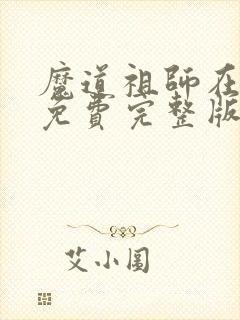 魔道祖師在
免費完整版
艾小圖